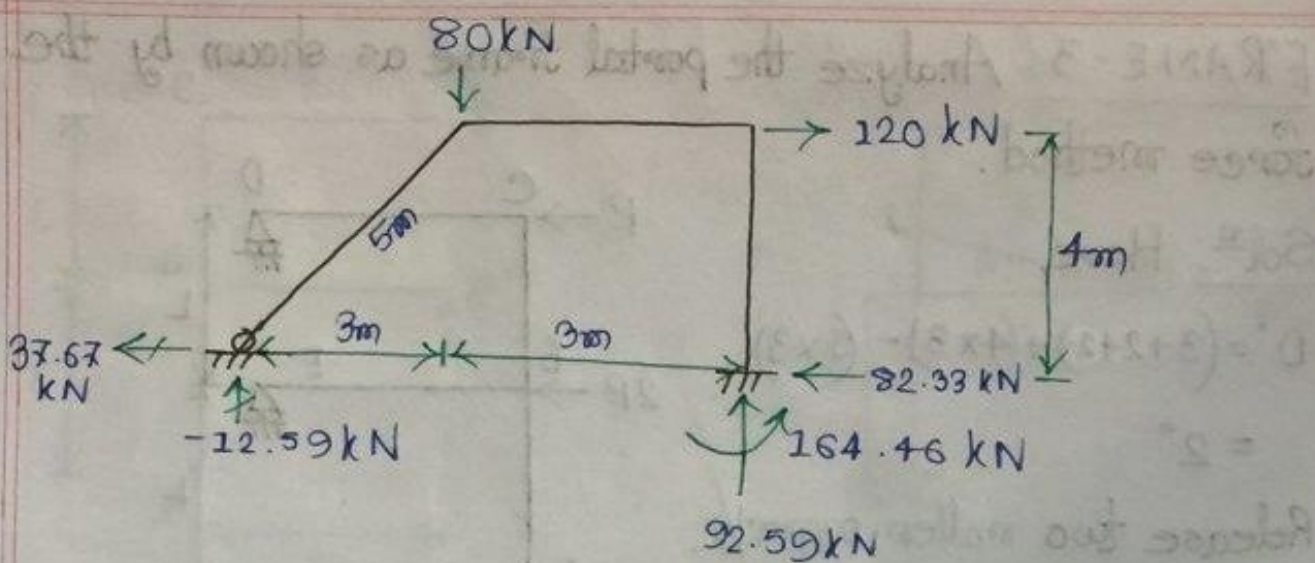 80kN
120 kN
5m
4m
3m
3m
37.67
kN
82.33 kN
-12.59kN
164.46 kN
92.59kN